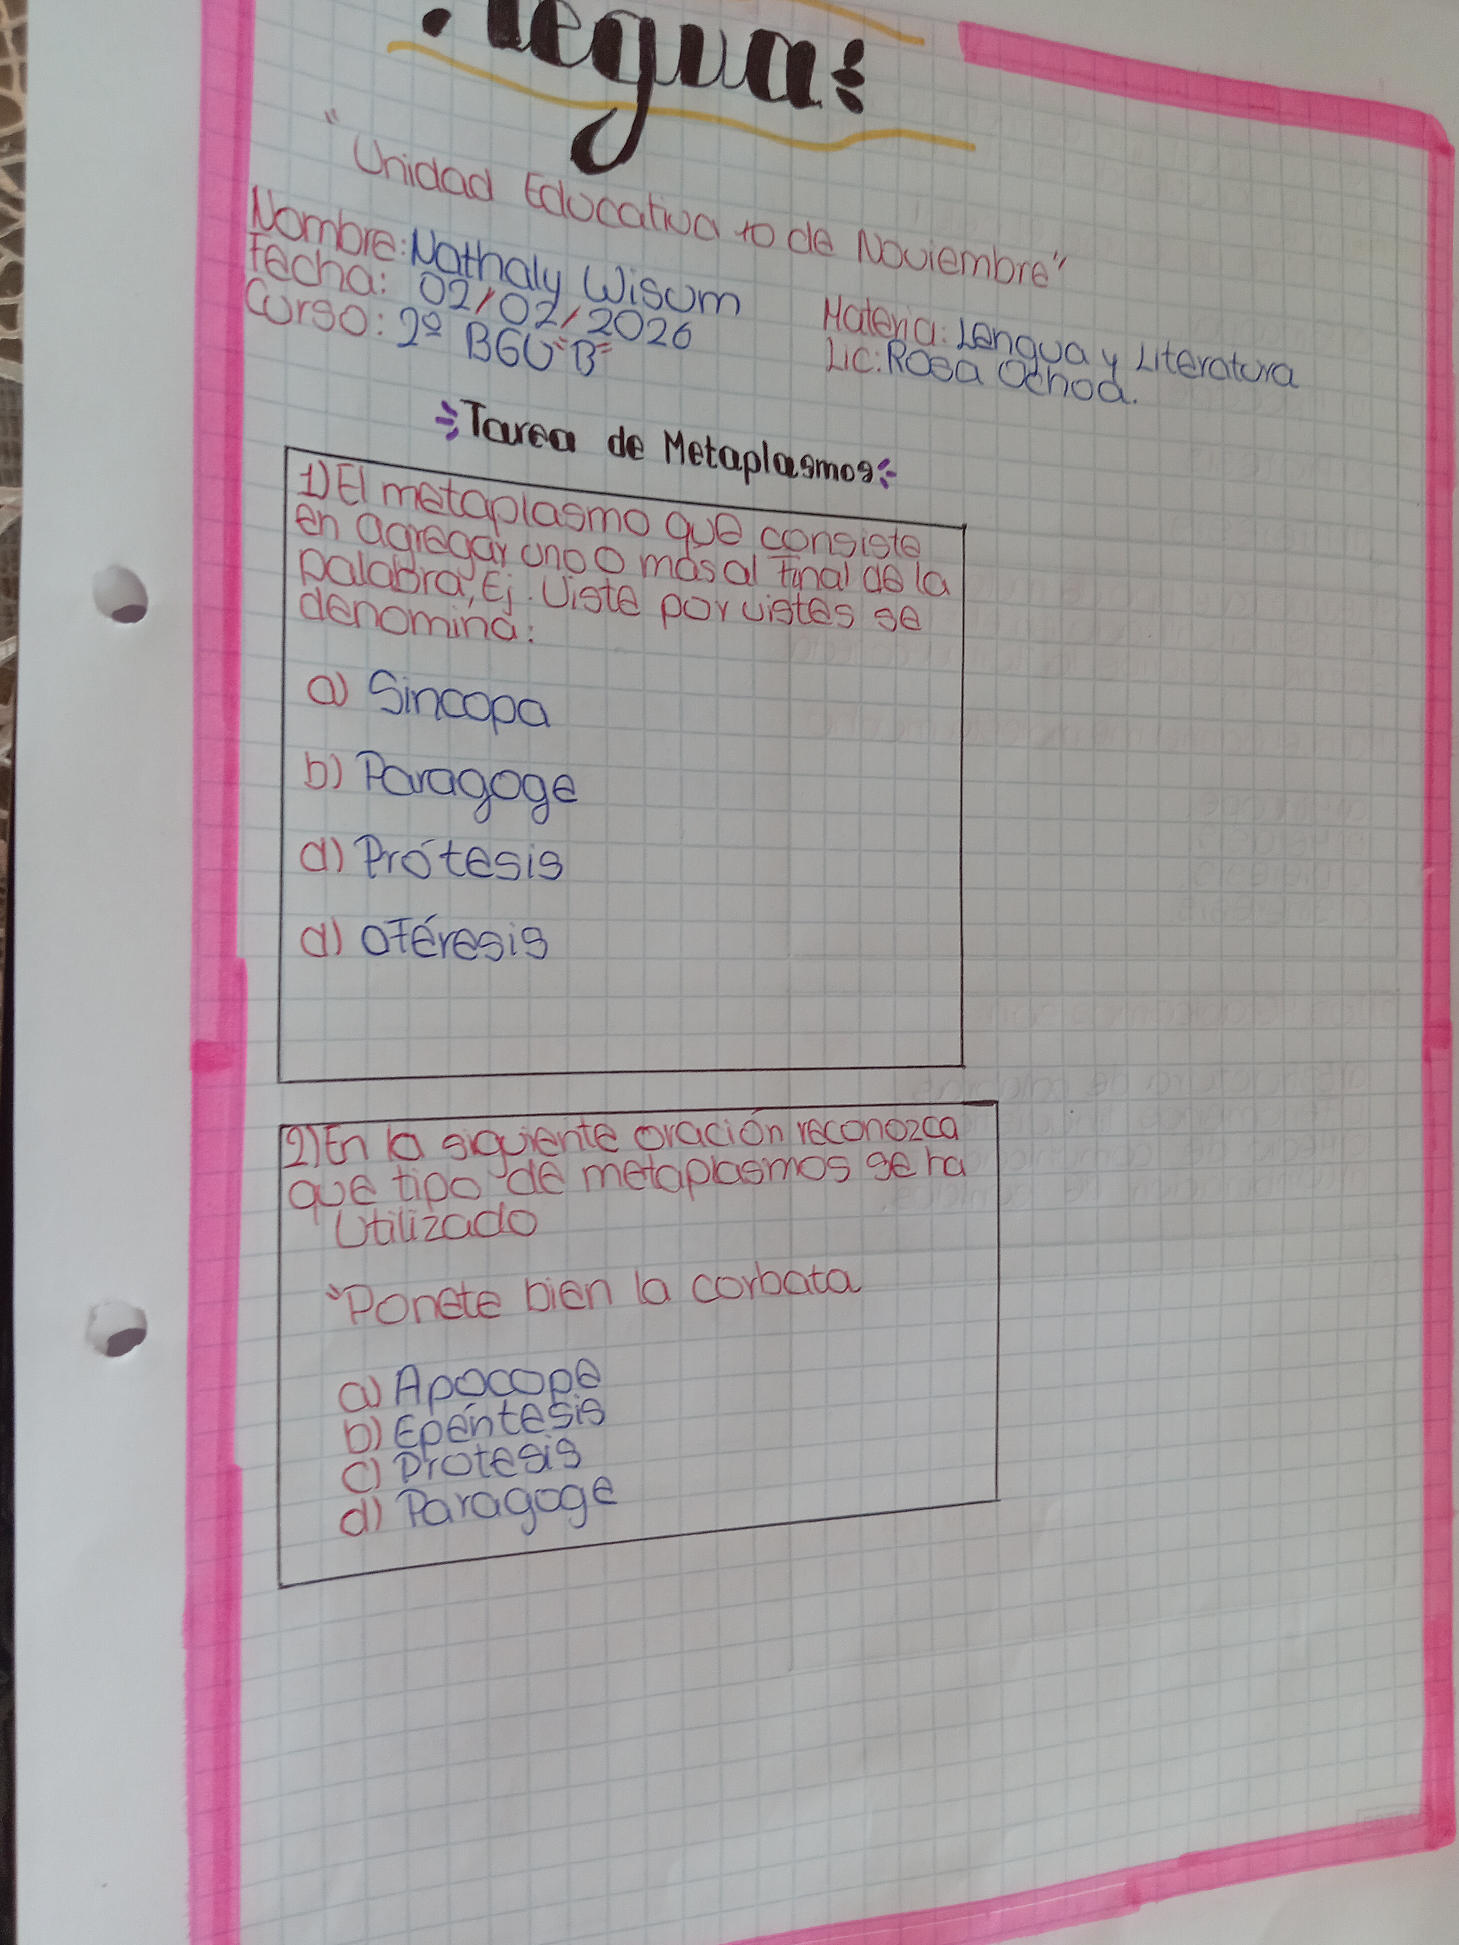 "Unidad Educativa 10 de Noviembre"
Nombre: Nathaly Wisum
Fecha: 02/02/2026
Curso: 2º BGU "B"
Materia: Lengua y Literatura
Lic: Rosa Ochoa.
Tarea de Metaplasmos
1) El metaplasmo que consiste
en agregar uno o más al final de la
palabra, Ej. Viste por vistes se
denomina:
a) Sincopa
b) Paragoge
d) Prótesis
d) aféresis
2) En la siguiente oración reconozca
que tipo de metaplasmos se ha
Utilizado
"Ponete bien la corbata
a) Apocope
b) Epéntesis
c) Protesis
d) Paragoge